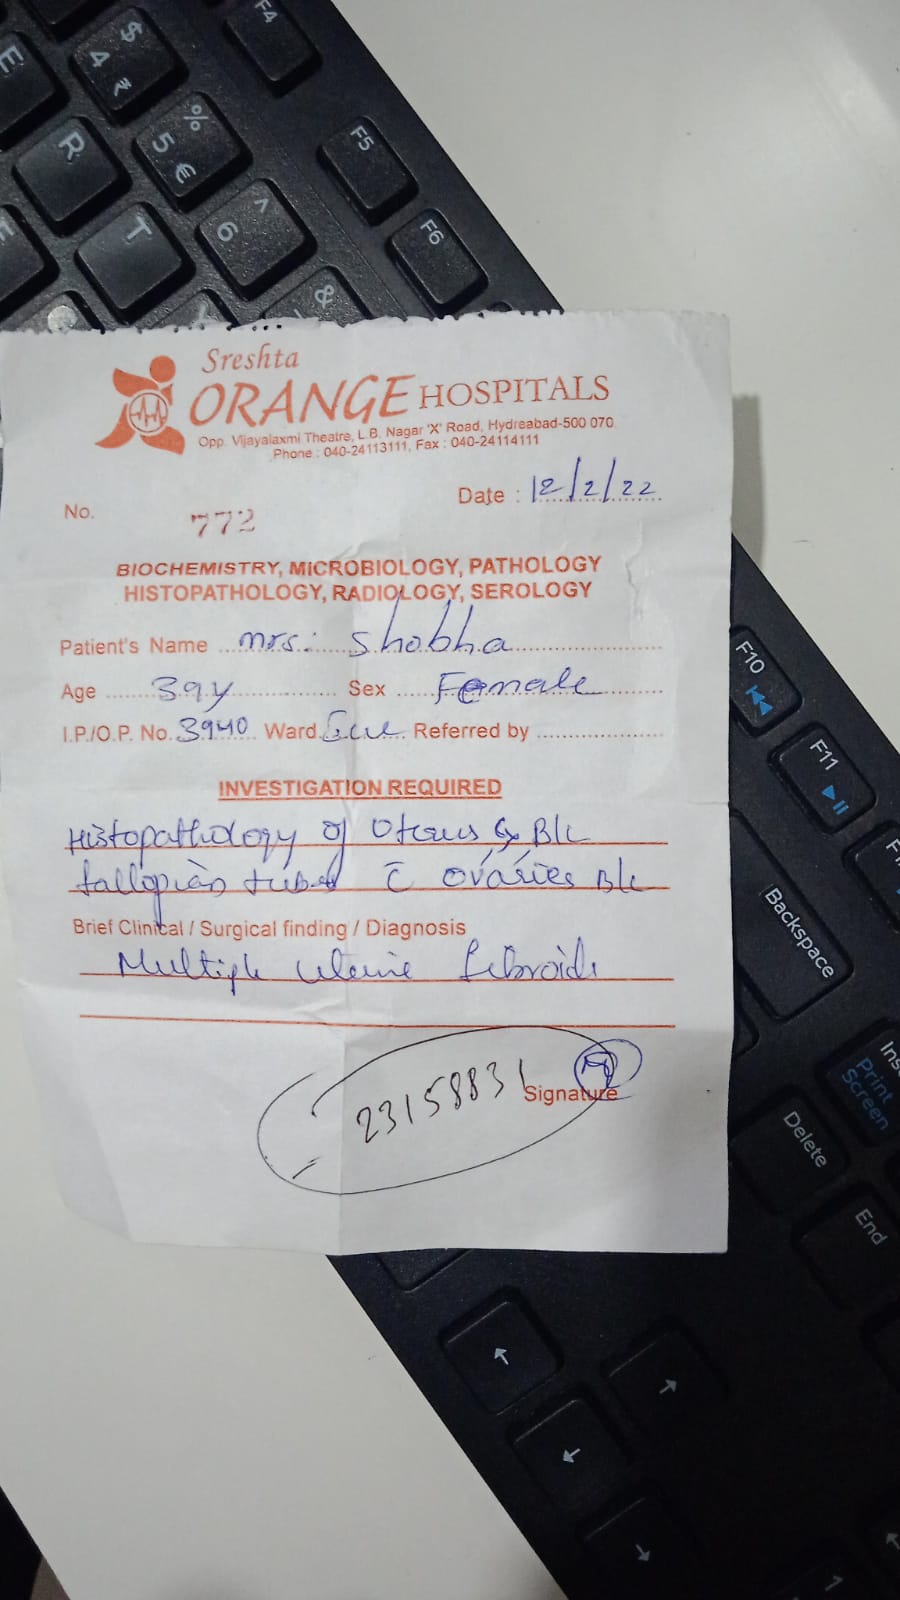 $
4
₹
E
R
%
5
€
T
^
6
&
F4
F5
F6
Sreshta
ORANGE HOSPITALS
Opp. Vijayalaxmi Theatre, L.B. Nagar 'X' Road, Hydreabad-500 070.
Phone : 040-24113111, Fax : 040-24114111
No. 772
Date : 12/2/22
BIOCHEMISTRY, MICROBIOLOGY, PATHOLOGY
HISTOPATHOLOGY, RADIOLOGY, SEROLOGY
Patient's Name mrs: Shobha
Age 39y Sex Female
I.P./O.P. No. 3940 Ward Referred by
INVESTIGATION REQUIRED
Histopathology of Uterus Cx B/L
fallopian tubes c̄ ovaries B/L
Brief Clinical / Surgical finding / Diagnosis
Multiple uterine fibroids
23158831
Signature
F10
F11
Backspace
Print
Screen
Delete
End